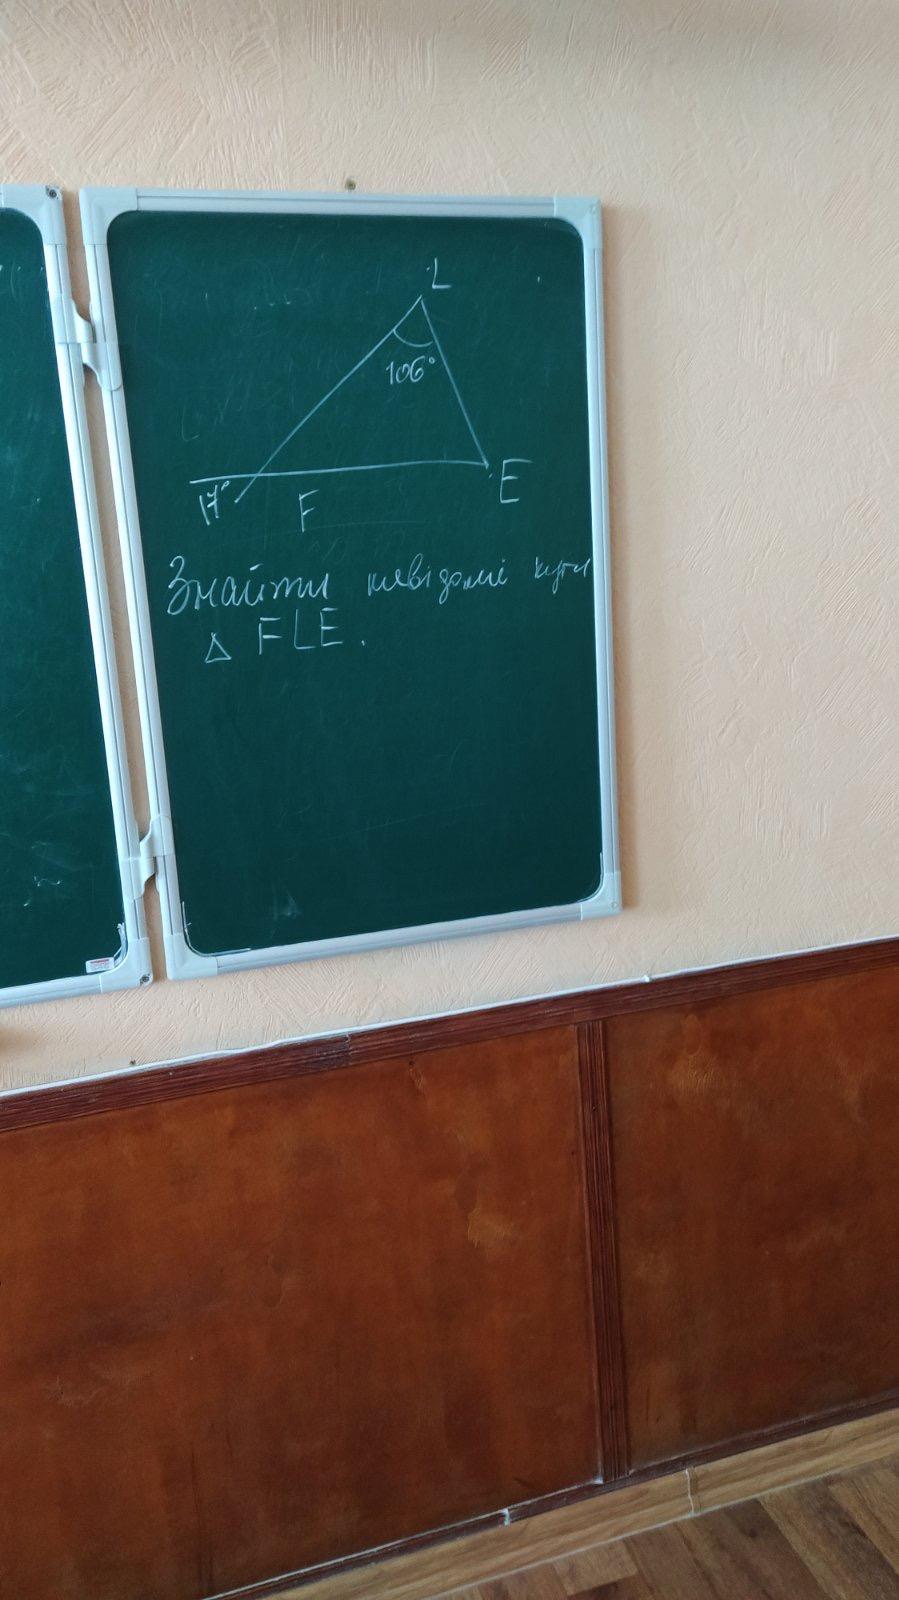 L
106°
17°
F
E
Знайти невідомі кути
△ FLE.